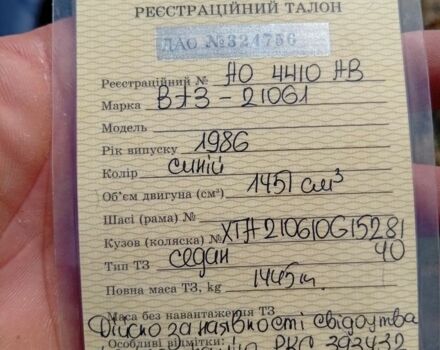 РЕЄСТРАЦІЙНИЙ ТАЛОН
ДАО №324756
Реєстраційний № АО 4410 АВ
Марка ВАЗ - 21061
Модель
Рік випуску 1986
Колір синій
Об'єм двигуна (см³) 1451 см³
Шасі (рама) №
Кузов (коляска) № ХТА210610G15281
40
Тип ТЗ седан
Повна маса ТЗ, kg 1445
Маса без навантаження ТЗ
Дійсно за наявності свідоцтва
Особливі відмітки: РКС 393432